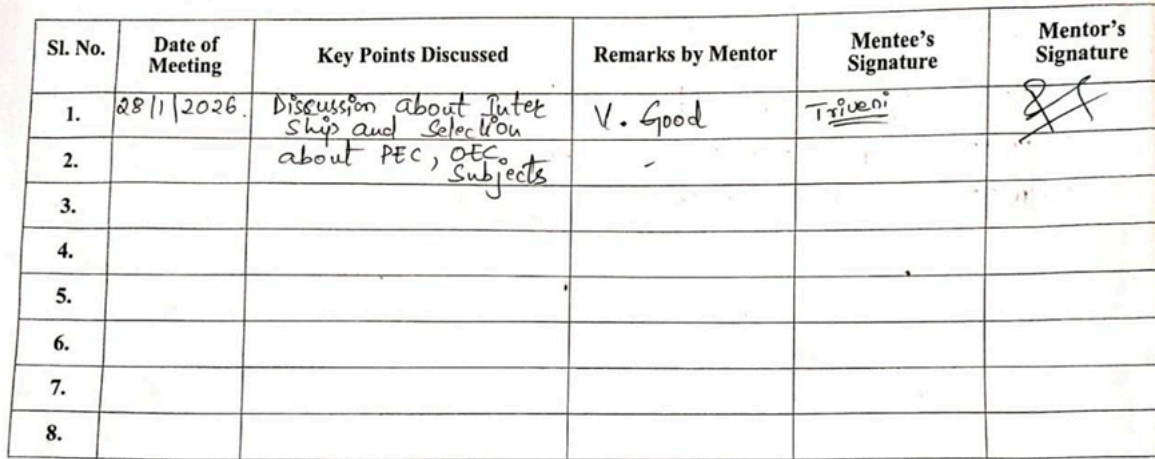 Sl. No. Date of Meeting Key Points Discussed Remarks by Mentor Mentee's Signature Mentor's Signature
1. 28/1/2026. Discussion about Inter V. Good Triveni
Ship and Selection
2. about PEC, OEC -
Subjects
3.
4.
5.
6.
7.
8.